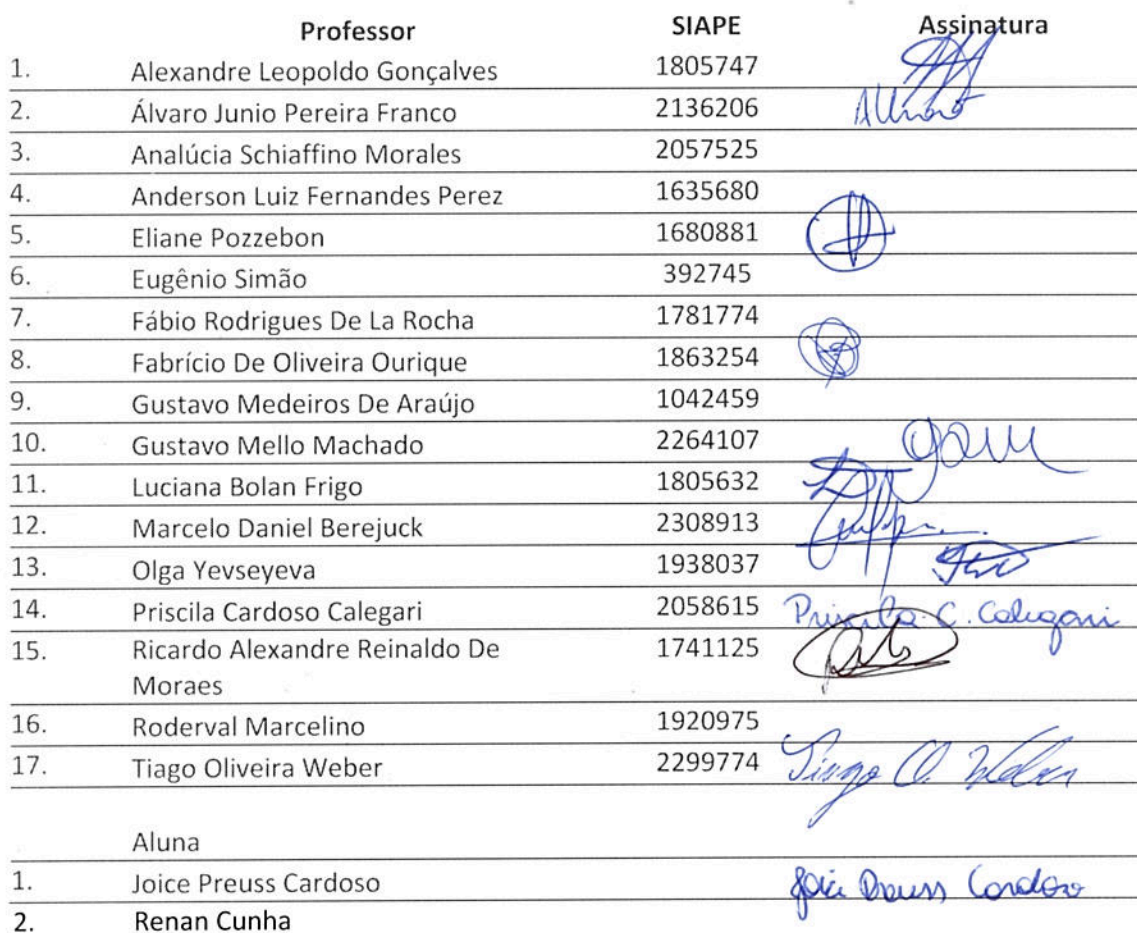 Professor SIAPE Assinatura
1. Alexandre Leopoldo Gonçalves 1805747
2. Álvaro Junio Pereira Franco 2136206
3. Analúcia Schiaffino Morales 2057525
4. Anderson Luiz Fernandes Perez 1635680
5. Eliane Pozzebon 1680881
6. Eugênio Simão 392745
7. Fábio Rodrigues De La Rocha 1781774
8. Fabrício De Oliveira Ourique 1863254
9. Gustavo Medeiros De Araújo 1042459
10. Gustavo Mello Machado 2264107
11. Luciana Bolan Frigo 1805632
12. Marcelo Daniel Berejuck 2308913
13. Olga Yevseyeva 1938037
14. Priscila Cardoso Calegari 2058615 Priscila C. Calegari
15. Ricardo Alexandre Reinaldo De 1741125
Moraes
16. Roderval Marcelino 1920975
17. Tiago Oliveira Weber 2299774 Tiago O. Weber
Aluna
1. Joice Preuss Cardoso Joice Preuss Cardoso
2. Renan Cunha